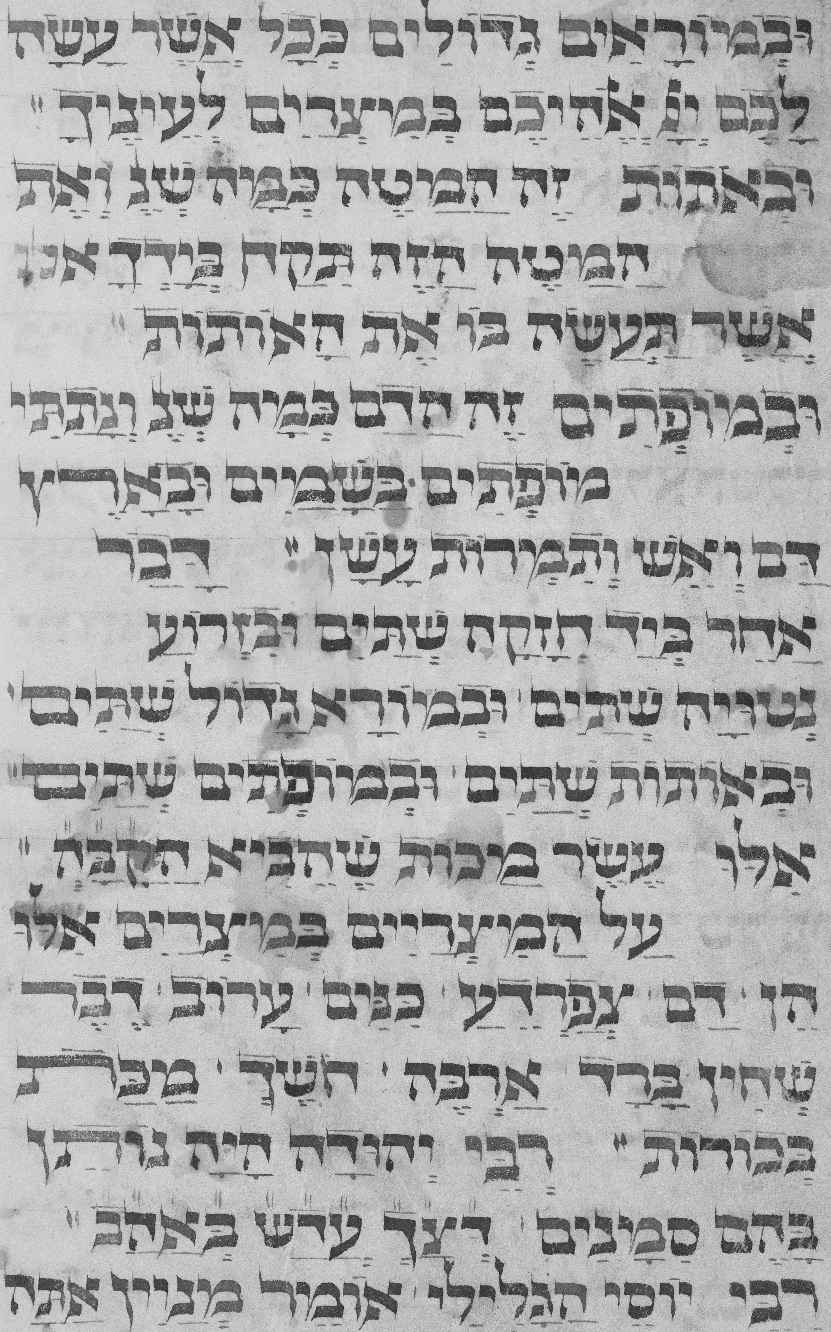 וּבְמוֹרָאִים גְּדוֹלִים כְּכֹל אֲשֶׁר עָשָׂה
לָכֶם יְיָ אֱלֹהֵיכֶם בְּמִצְרַיִם לְעֵינֶיךָ ״
וּבְאוֹתוֹת זֶה הַמַּטֶּה כְּמָה שֶׁנֶּ וְאֶת
הַמַּטֶּה הַזֶּה תִּקַּח בְּיָדֶךָ
אֲשֶׁר תַּעֲשֶׂה בּוֹ אֶת הָאוֹתוֹת ״
וּבְמוֹפְתִים זֶה הַדָּם כְּמָה שֶׁנֶּ וְנָתַתִּי
מוֹפְתִים בַּשָּׁמַיִם וּבָאָרֶץ
דָּם וָאֵשׁ וְתִמְרוֹת עָשָׁן ״ דָּבָר
אַחֵר בְּיָד חֲזָקָה שְׁתַּיִם וּבִזְרוֹעַ
נְטוּיָה שְׁתַּיִם ׳ וּבְמוֹרָא גָּדוֹל שְׁתַּיִם ׳
וּבְאוֹתוֹת שְׁתַּיִם ׳ וּבְמוֹפְתִים שְׁתַּיִם ״
אֵלּוּ עֶשֶׂר מַכּוֹת שֶׁהֵבִיא הַקָּבָּה ״
עַל הַמִּצְרִיִּים בְּמִצְרַיִם אֵלּוּ
הֵן ׳ דָּם ׳ צְפַרְדֵּעַ ׳ כִּנִּים ׳ עָרוֹב ׳ דֶּבֶר
שְׁחִין בָּרָד אַרְבֶּה ׳ חֹשֶׁךְ ׳ מַכַּת
בְּכוֹרוֹת ״ רַבִּי יְהוּדָה הָיָה נוֹתֵן
בָּהֶם סִמָּנִים ׳ דְּצַךְ עֲדַשׁ בְּאַחַב ״
רַבִּי יוֹסֵי הַגְּלִילִי ׳ אוֹמֵר מִנַּיִן אַתָּה